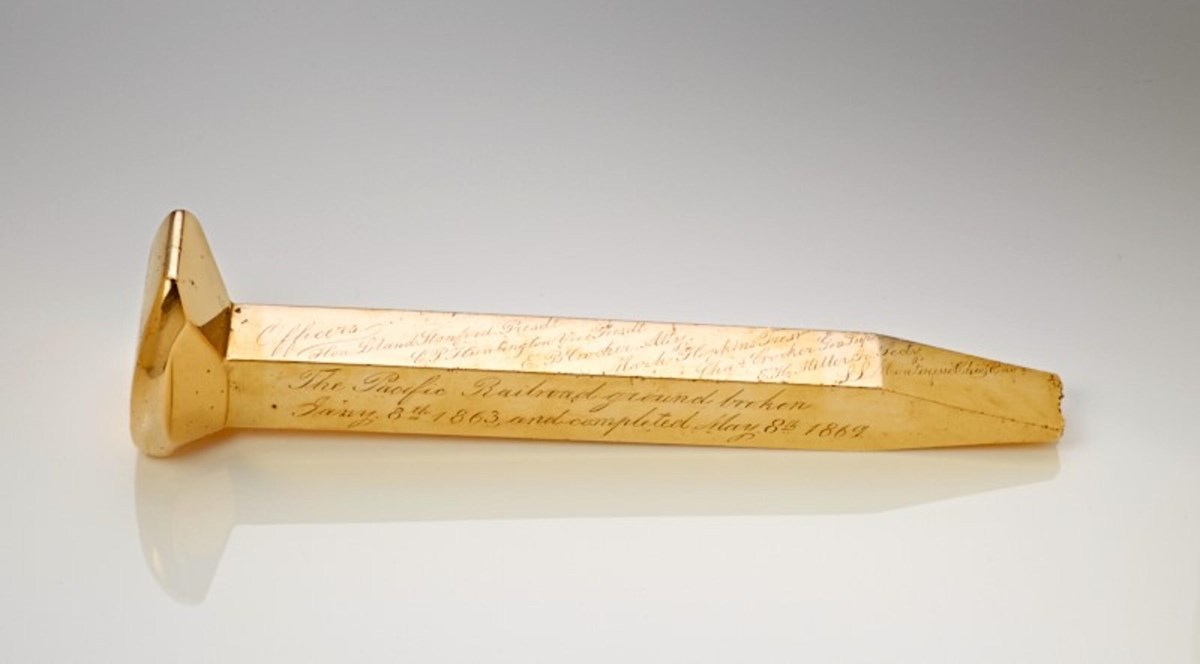 Officers
Hon. Leland Stanford. Presdt
C. P. Huntington Vice Presdt
E. B. Crocker Atty.
Mark Hopkins Tresr
Chas Crocker Gen Supt
E. H. Miller Jr Secty
S. S. Montague Chief Engr
The Pacific Railroad ground broken
Jany. 8th 1863, and completed May 8th 1869